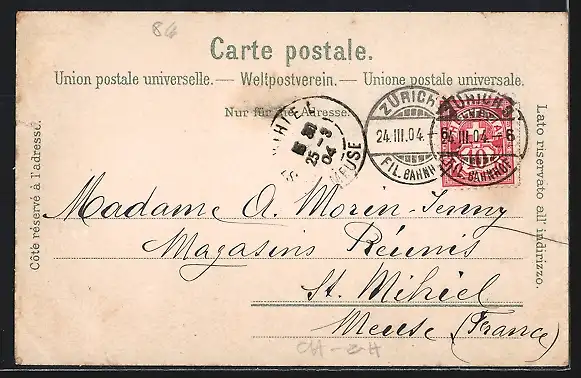 86
Carte postale.
Union postale universelle. — Weltpostverein. — Unione postale universale.
Nur für die Adresse.
Côté réservé à l'adresse.
Lato riservato all' indirizzo.
ST MIHIEL
25 - 3
04
MEUSE
ZÜRICH
24.III.04.
FIL. BAHNH
ZÜRICH
24.III.04.-6
FIL. BAHNHOF
10
Madame A. Morin-Jenny
Magasins Réunis
St. Mihiel
Meuse (France)
CH-ZH